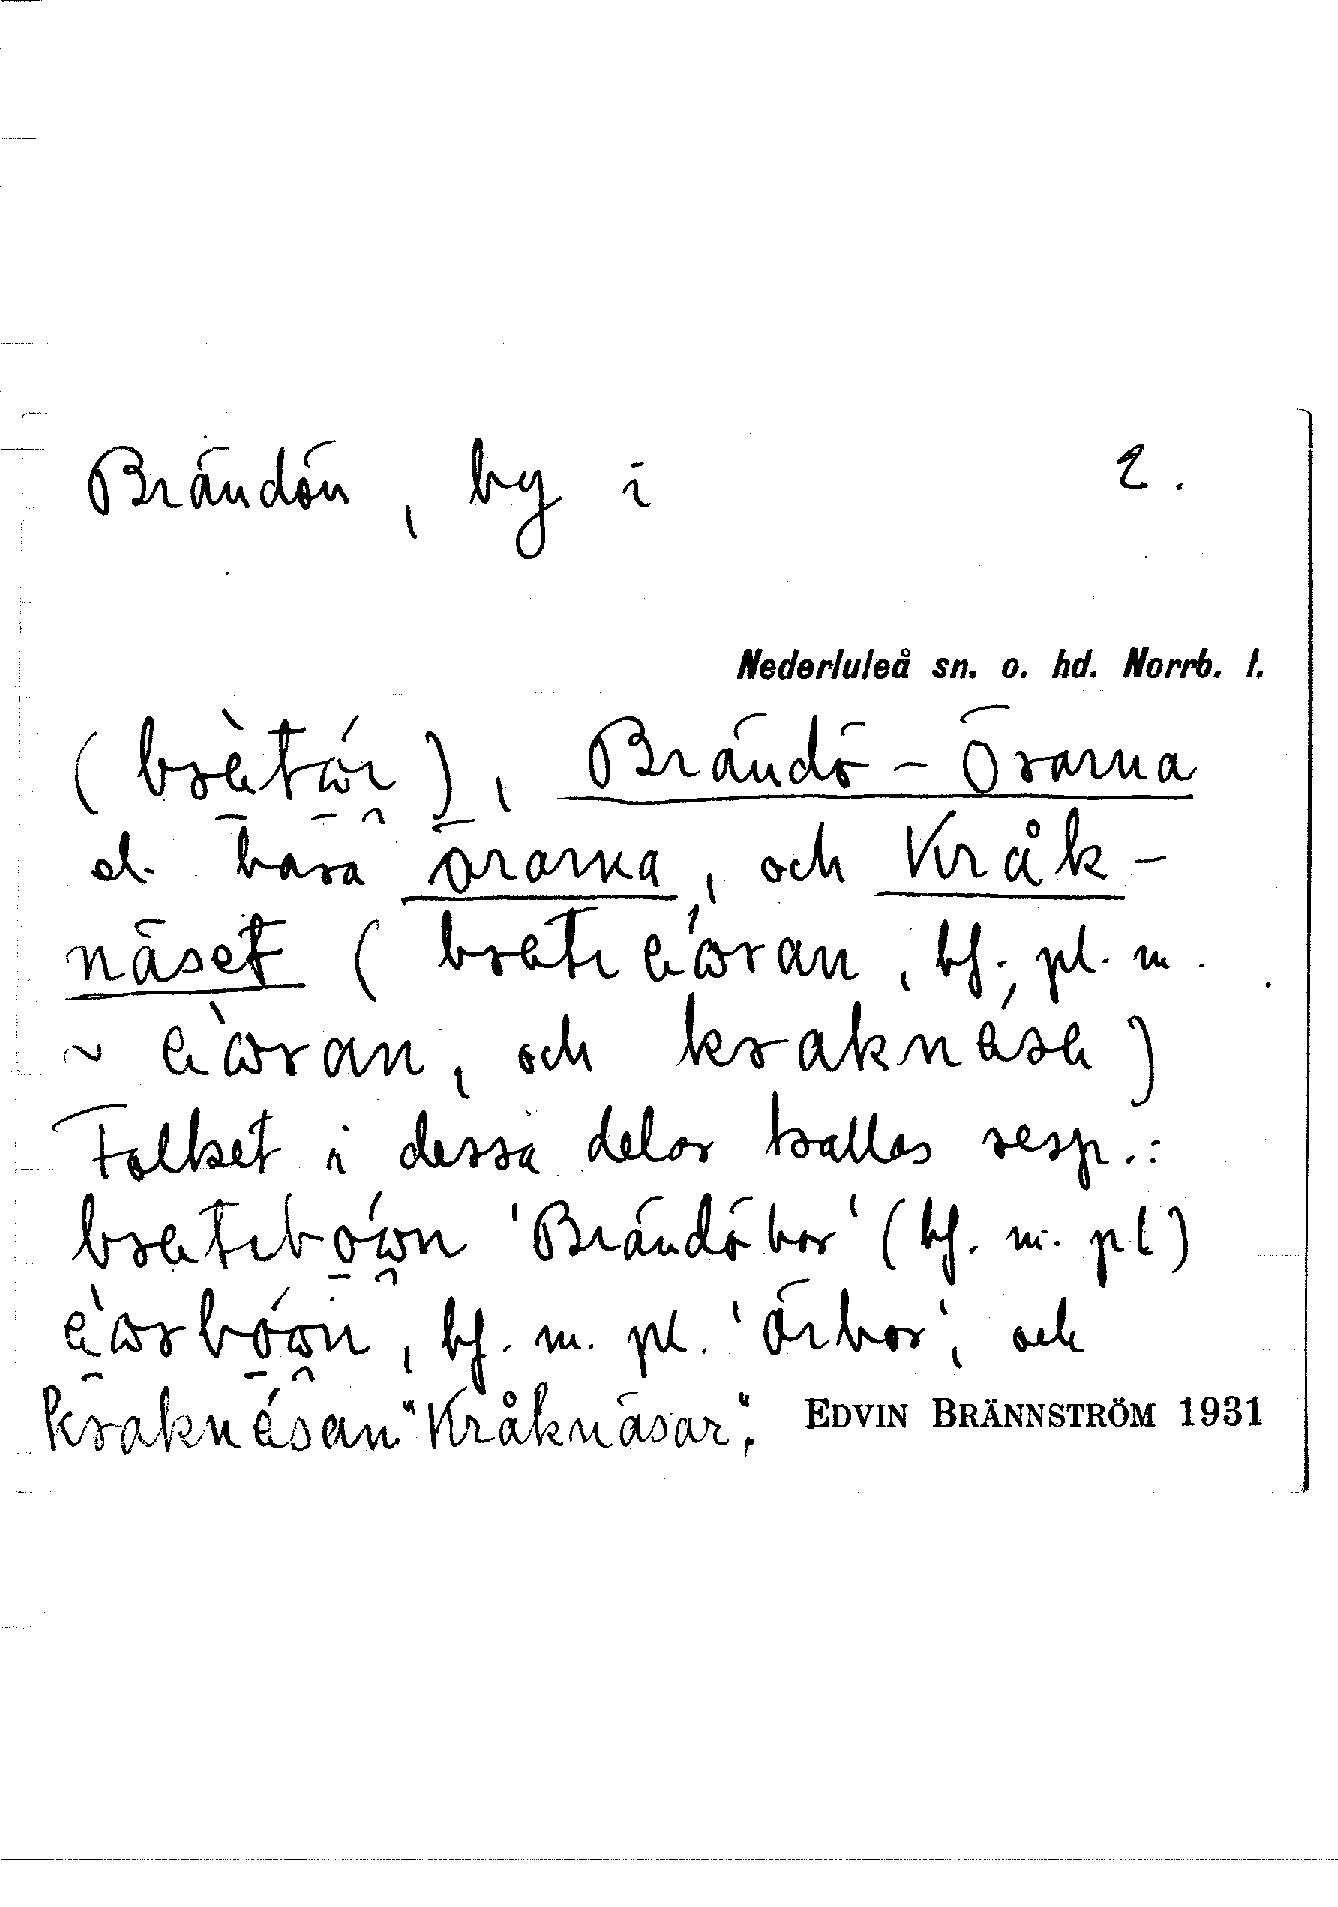 Brändön, by i 2.
Nederluleå sn. o. hd. Norrb. l.
Brändö-Örarna
el. bara örarna, och Kråk-
näset ( , bf. pl. m.
~ , och )
Folket i dessa delar kallas resp.:
'Brändöbor' (bf. m. pl)
, bf. m. pl. 'Örbor', och
"Kråknäsar".
EDVIN BRÄNNSTRÖM 1931